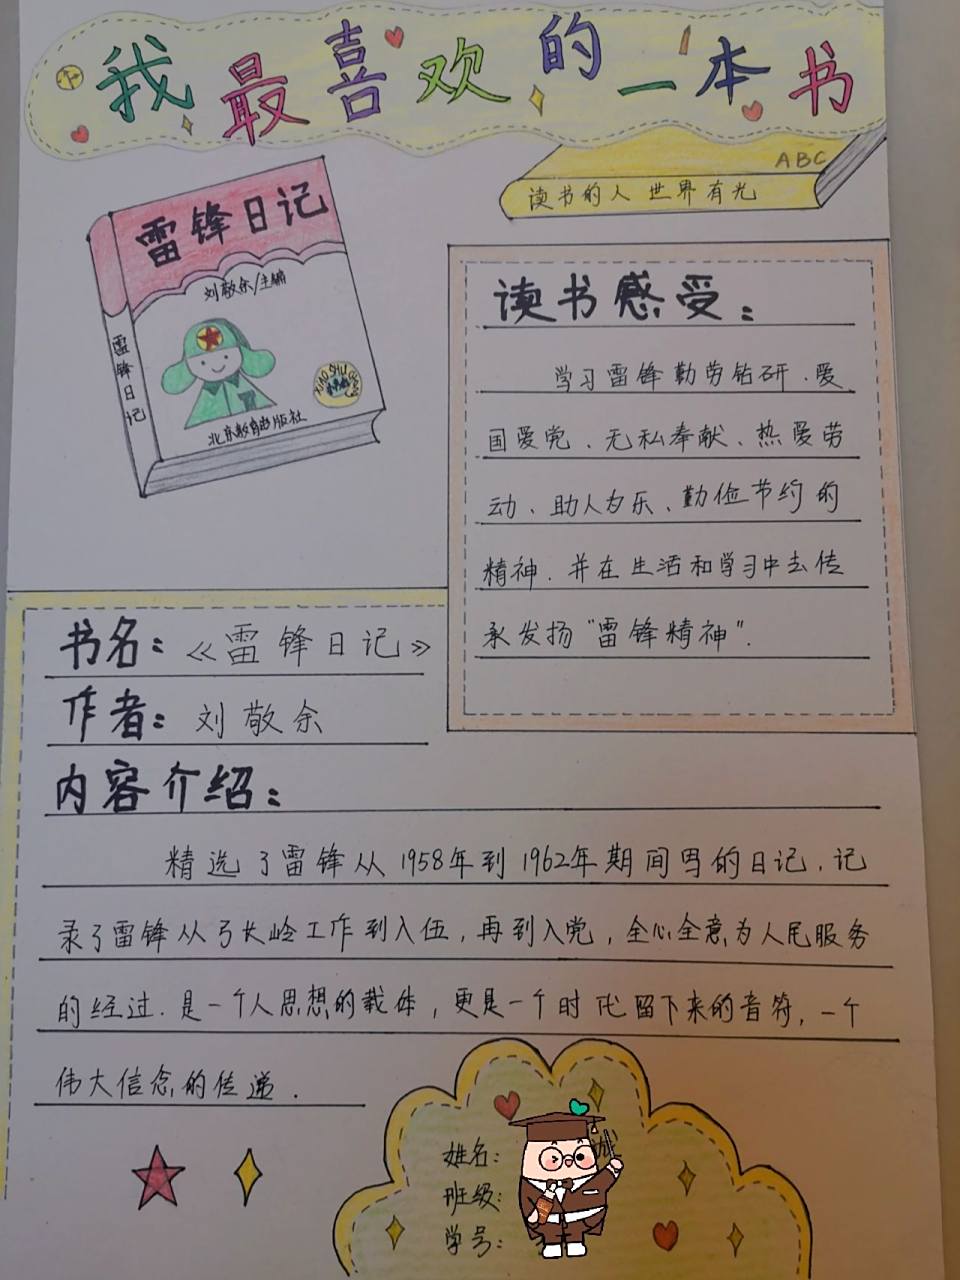 我最喜欢的一本书
ABC
读书的人 世界有光
雷锋日记
刘敬余/主编
雷锋日记
北京教育出版社
读书感受：
学习雷锋勤劳钻研、爱
国爱党、无私奉献、热爱劳
动、助人为乐、勤俭节约的
精神.并在生活和学习中去传
承发扬"雷锋精神".
书名：《雷锋日记》
作者：刘敬余
内容介绍：
精选了雷锋从1958年到1962年期间写的日记，记
录了雷锋从弓长岭工作到入伍，再到入党，全心全意为人民服务
的经过.是一个人思想的载体，更是一个时代留下来的音符，一个
伟大信念的传递.
姓名：
班级：
学号：